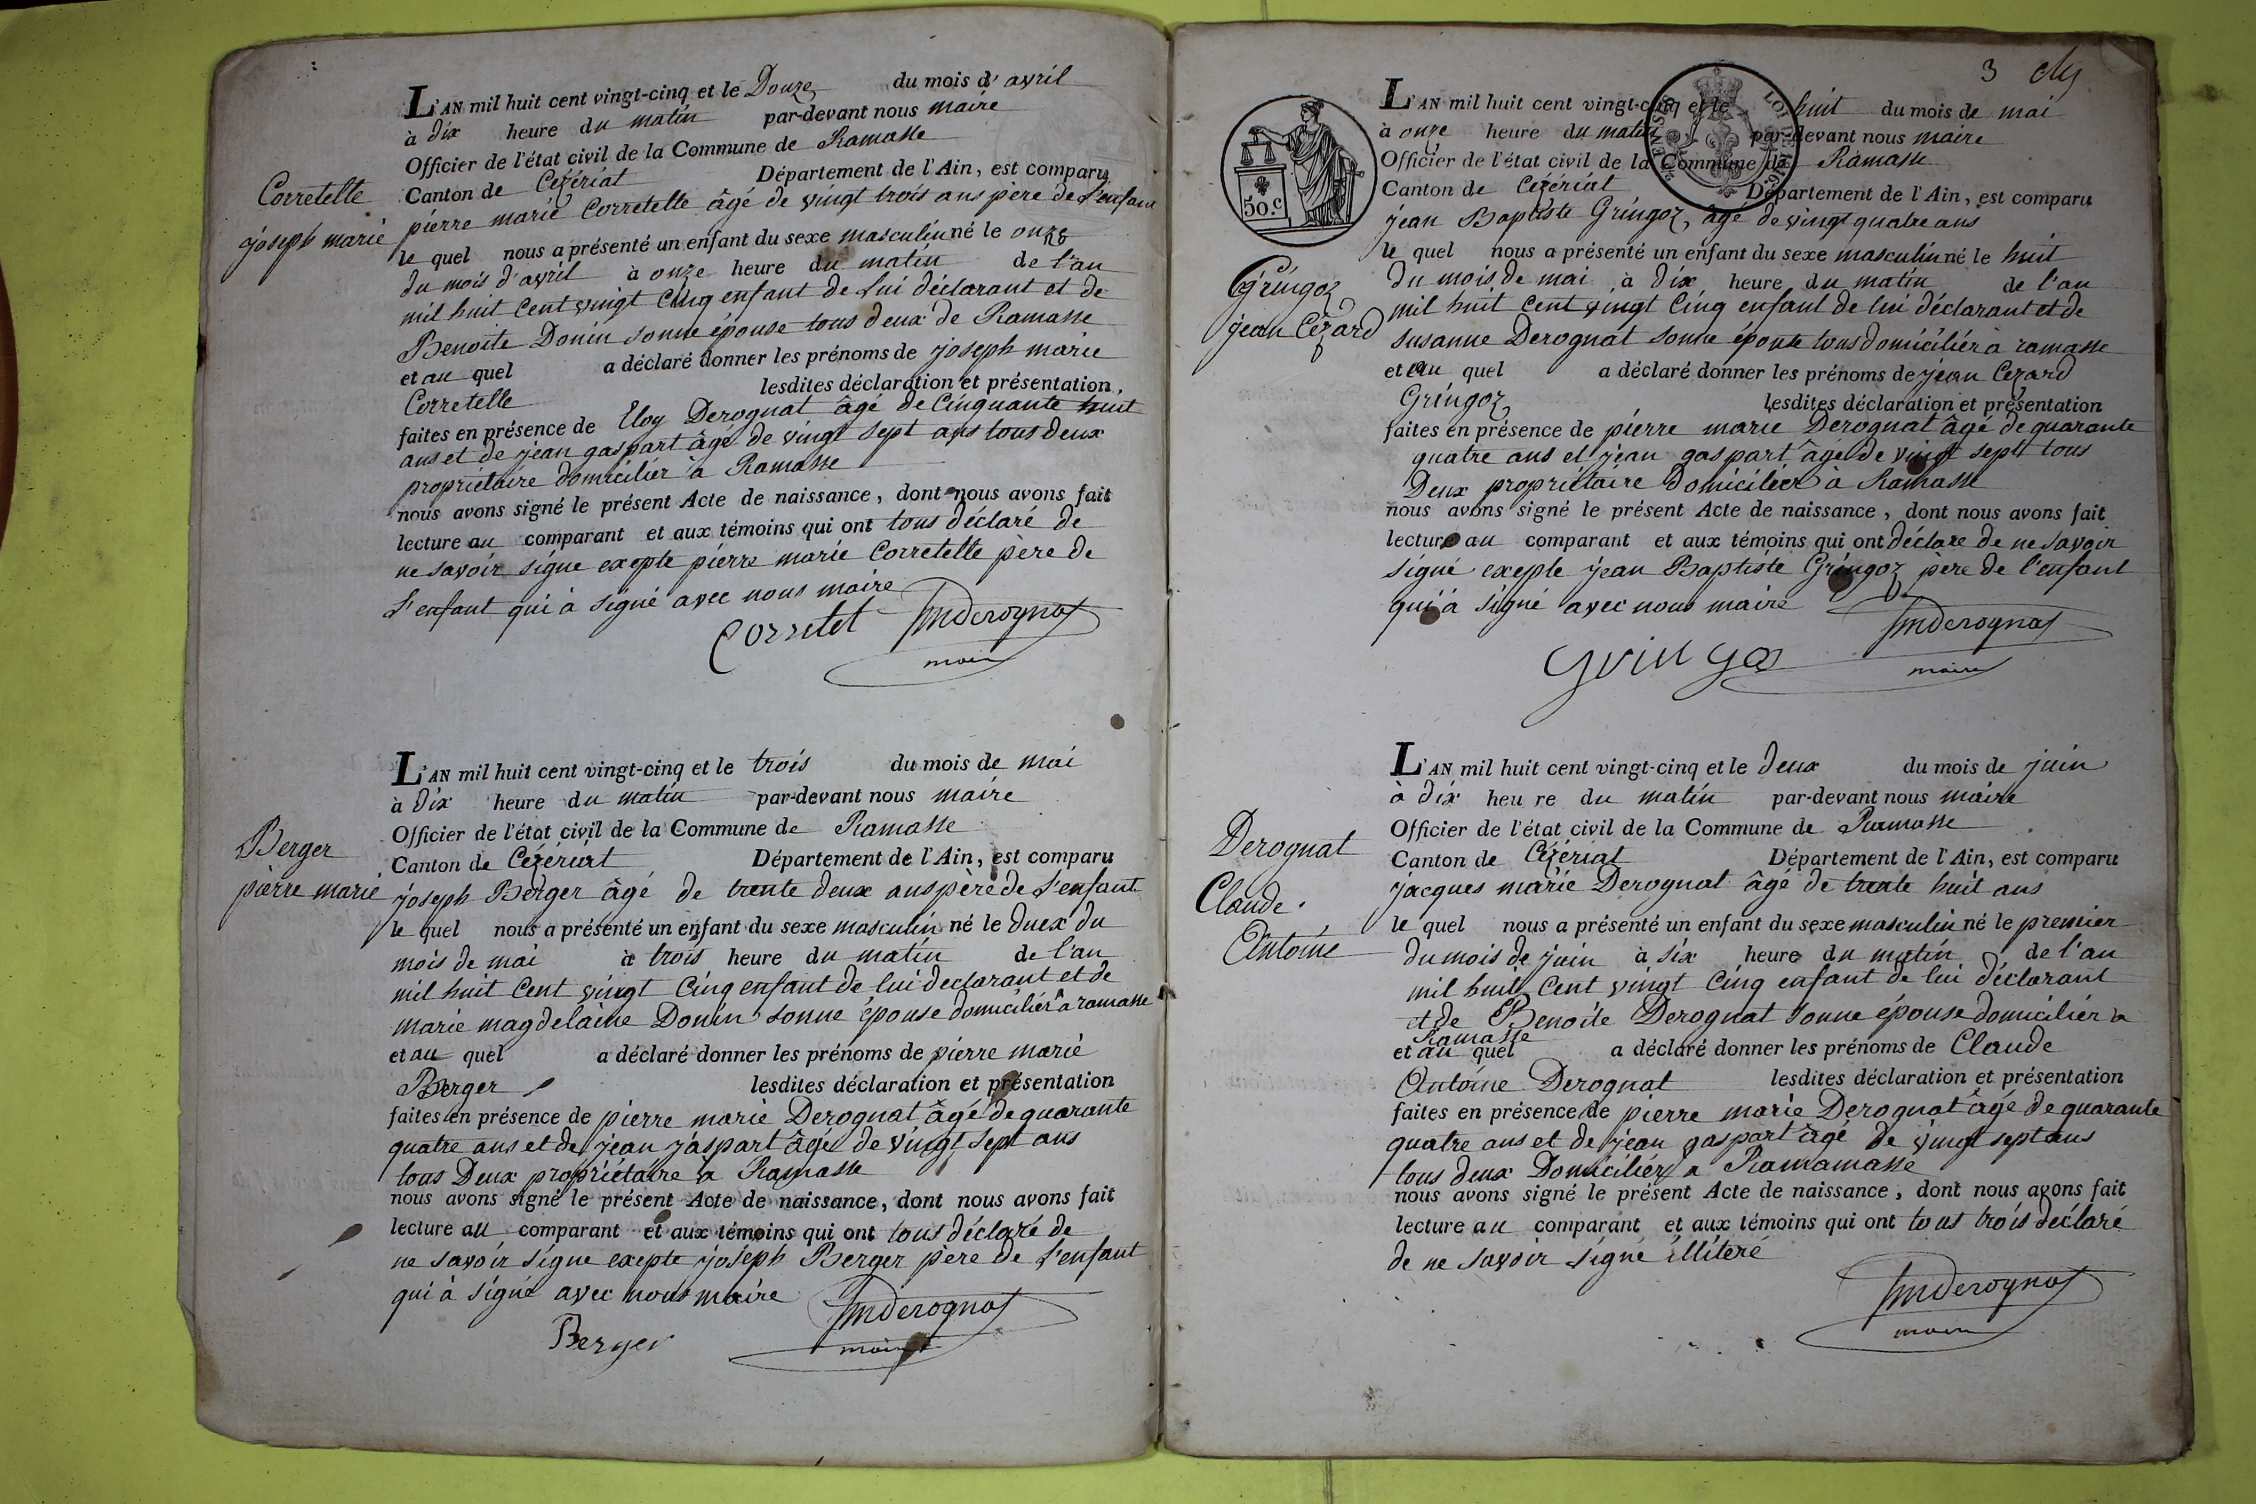 Corretelle
joseph marie
L'AN mil huit cent vingt-cinq et le Douze du mois d'avril
à dix heure du matin par-devant nous maire
Officier de l'état civil de la Commune de Ramasse
Canton de Cézériat Département de l'Ain, est comparu
pierre marie Corretelle âgé de vingt trois ans père de l'enfant
le quel nous a présenté un enfant du sexe masculin né le onze
du mois d'avril à onze heure du matin de l'an
mil huit cent vingt cinq enfant de lui déclarant et de
Benoite Donin sonne épouse tous deux de Ramasse
et au quel a déclaré donner les prénoms de joseph marie
Corretelle lesdites déclaration et présentation.
faites en présence de Eloy Derognat âgé de Cinquante huit
ans et de jean gaspart âgé de vingt sept ans tous deux
propriétaire domicilier à Ramasse
nous avons signé le présent Acte de naissance, dont nous avons fait
lecture au comparant et aux témoins qui ont tous déclaré de
ne savoir signe exepte pierre marie Corretelle père de
l'enfant qui à signé avec nous maire
Corretet
maire
Berger
pierre marie
L'AN mil huit cent vingt-cinq et le trois du mois de mai
à dix heure du matin par-devant nous maire
Officier de l'état civil de la Commune de Ramasse
Canton de Cézériat Département de l'Ain, est comparu
joseph Berger âgé de trente deux ans père de l'enfant
le quel nous a présenté un enfant du sexe masculin né le duex du
mois de mai à trois heure du matin de l'an
mil huit Cent vingt Cinq enfant de lui declarant et de
marie magdelaine Donin sonne épouse domicilier a ramasse
et au quel a déclaré donner les prénoms de pierre marie
Berger lesdites déclaration et présentation
faites en présence de pierre marie Derognat âgé de quarante
quatre ans et de jean jaspart âgé de vingt sept ans
tous Deux propriétaire à Ramasse
nous avons signé le présent Acte de naissance, dont nous avons fait
lecture au comparant et aux témoins qui ont tous déclaré de
ne savoir signe exepte joseph Berger père de l'enfant
qui à signé avec nous maire
Berger
maire
3
50.C
Gringoz
jean Cézard
L'AN mil huit cent vingt-cinq et le huit du mois de mai
à onze heure du matin par-devant nous maire
Officier de l'état civil de la Commune de Ramasse
Canton de Cézériat Département de l'Ain, est comparu
jean Baptiste Gringoz, âgé de vingt quatre ans
le quel nous a présenté un enfant du sexe masculin né le huit
du mois de mai à dix heure du matin de l'an
mil huit Cent vingt Cinq enfant de lui déclarant et de
susanne Derognat sonne épouse tous domicilier à ramasse
et au quel a déclaré donner les prénoms de jean Cezard
Gringoz, lesdites déclaration et présentation
faites en présence de pierre marie Derognat âgé de quarante
quatre ans et jean gaspart âgé de vingt sept tous
Deux propriétaire Domicilier à Ramasse
nous avons signé le présent Acte de naissance, dont nous avons fait
lecture au comparant et aux témoins qui ont déclare de ne savoir
signé exepte jean Baptiste Gringoz père de l'enfant
qui à signé avec nous maire
maire
Derognat
Claude.
Antoine
L'AN mil huit cent vingt-cinq et le deux du mois de juin
à dix heure du matin par-devant nous maire
Officier de l'état civil de la Commune de Ramasse
Canton de Cézériat Département de l'Ain, est comparu
jacques marie Derognat âgé de trente huit ans
le quel nous a présenté un enfant du sexe masculin né le premier
du mois de juin à six heure du matin de l'an
mil huit Cent vingt Cinq enfant de lui déclarant
et de Benoite Derognat sonne épouse domicilier a
Ramasse
et au quel a déclaré donner les prénoms de Claude
Antoine Derognat lesdites déclaration et présentation
faites en présence de pierre marie Derognat âgé de quarante
quatre ans et de jean gaspart âgé de vingt sept ans
tous deux Domicilier a Ramamasse
nous avons signé le présent Acte de naissance, dont nous avons fait
lecture au comparant et aux témoins qui ont tous trois déclaré
de ne savoir signé illiteré
maire